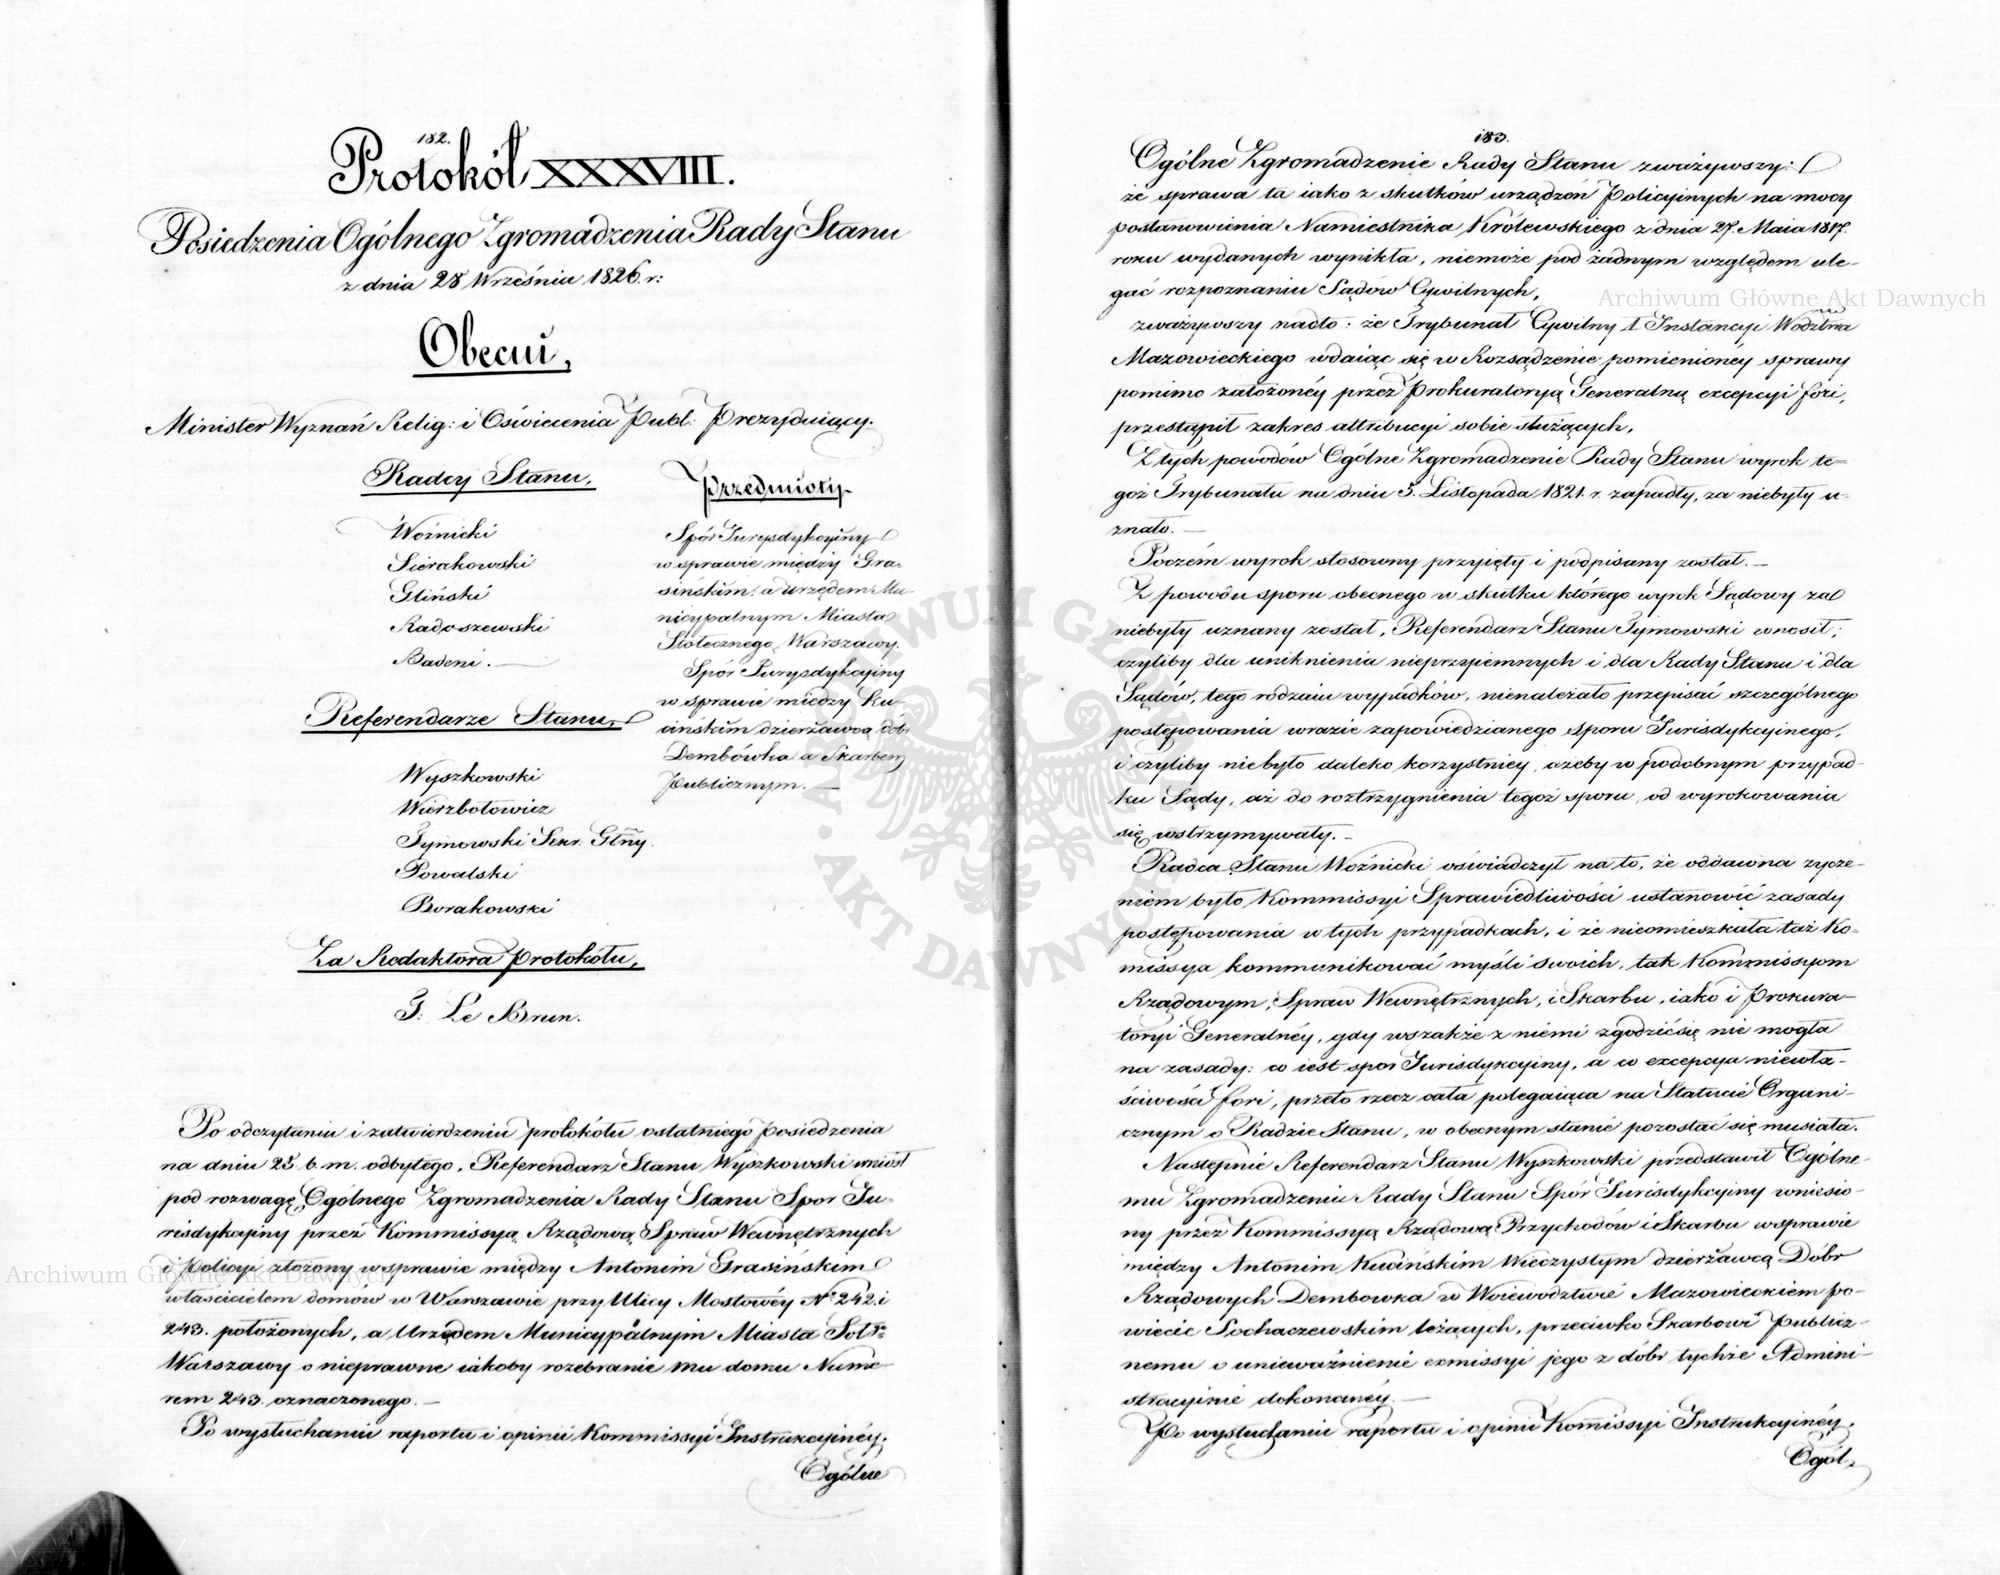 182.
Protokół XXXVIII.
Posiedzenia Ogólnego Zgromadzenia Rady Stanu
z dnia 28 Września 1826. r:
Obecni,
Minister Wyznań Relig: i Oświecenia Publ: Prezydujący.
Radcy Stanu,
Woźnicki
Sierakowski
Gliński
Radoszewski
Badeni. —
Referendarze Stanu,
Wyszkowski
Wierzbołowicz
Tymowski Sekr. Głńy.
Powalski
Borakowski
Za Redaktora Protokółu,
J. Le Brun.
Przedmioty.
Spór Jurysdykcyiny
w sprawie między Gra-
sińskim, a Urzędem Mu-
nicypalnym Miasta
Stołecznego Warszawy.
Spór Jurysdykcyiny
w sprawie między Ku-
cińskim dzierżawcą dóbr
Dembówka a Skarbem
Publicznym. —
Po odczytaniu i zatwierdzeniu protokółu ostatniego posiedzenia
na dniu 25 b. m. odbytego, Referendarz Stanu Wyszkowski wniósł
pod rozwagę Ogólnego Zgromadzenia Rady Stanu Spór Ju-
risdykcyiny przez Kommissyą Rządową Spraw Wewnętrznych
i Policyi złożony w sprawie między Antonim Grasińskim
właścicielem domów w Warszawie przy Ulicy Mostowéy No 242 i
243. położonych, a Urzędem Municypalnym Miasta Stoł:
Warszawy o nieprawne iakoby rozebranie mu domu Nume-
rem 243. oznaczonego. —
Po wysłuchaniu raportu i opinii Kommissyi Instrukcyinéy,
Ogólne
183.
Ogólne Zgromadzenie Rady Stanu zważywszy:
że sprawa ta iako z skutków urządzeń Policyinych na mocy
postanowienia Namiestnika Królewskiego z dnia 27. Maia 1817.
roku wydanych wynikła, niemoże pod żadnym względem ule-
gać rozpoznaniu Sądów Cywilnych,
zważywszy nadto: że Trybunał Cywilny I Instancyi Wodztwa
Mazowieckiego wdaiąc się w Rozsądzenie pomienionéy sprawy
pomimo założonéy przez Prokuratoryą Generalną excepcyi fori,
przestąpił zakres attribucyi sobie służących,
Z tych powodów Ogólne Zgromadzenie Rady Stanu wyrok te-
goż Trybunału na dniu 5. Listopada 1821. r. zapadły, za niebyły u-
znało. —
Poczém wyrok stosowny przyięty i podpisany został. —
Z powodu sporu obecnego w skutku którego wyrok Sądowy za
niebyły uznany został, Referendarz Stanu Tymowski wnosił;
czyliby dla uniknienia nieprzyiemnych i dla Rady Stanu i dla
Sądów, tego rodzaiu wypadków, nienależało przepisać szczególnego
postępowania w razie zapowiedzianego sporu Jurisdykcyinego,
i czyliby niebyło daleko korzystniey, ażeby w podobnym przypad-
ku Sądy, aż do roztrzygnienia tegoż sporu, od wyrokowania
się wstrzymywały. —
Radca Stanu Woźnicki oświadczył na to, że oddawna życze-
niem było Kommissyi Sprawiedliwości ustanowić zasady
postępowania w tych przypadkach, i że nieomieszkała taż Ko-
missya kommunikować myśli swoich, tak Kommissyom
Rządowym, Spraw Wewnętrznych, i Skarbu, iako i Prokura-
toryi Generalnéy, gdy wszakże z niemi zgodzić się nie mogła
na zasady: co iest spór Jurisdykcyiny, a co excepcya niewła-
ściwości fori, przeto rzecz cała polegaiąca na Statucie Organi-
cznym o Radzie Stanu, w obecnym stanie pozostać się musiała.
Następnie Referendarz Stanu Wyszkowski przedstawił Ogólne-
mu Zgromadzeniu Rady Stanu Spór Jurisdykcyiny wniesio-
ny przez Kommissyą Rządową Przychodów i Skarbu w sprawie
między Antonim Kucińskim Wieczystym dzierżawcą Dóbr
Rządowych Dembowka w Woiewództwie Mazowieckiem po-
wiecie Sochaczewskim leżących, przeciwko Skarbowi Publicz-
nemu o unieważnienie exmissyi jego z dóbr tychże Admini-
stracyinie dokonanéy. —
Po wysłuchaniu raportu i opinii Kommissyi Instrukcyinéy,
Ogól-
Archiwum Główne Akt Dawnych
Archiwum Główne Akt Dawnych
ARCHIWUM GŁÓWNE AKT DAWNYCH